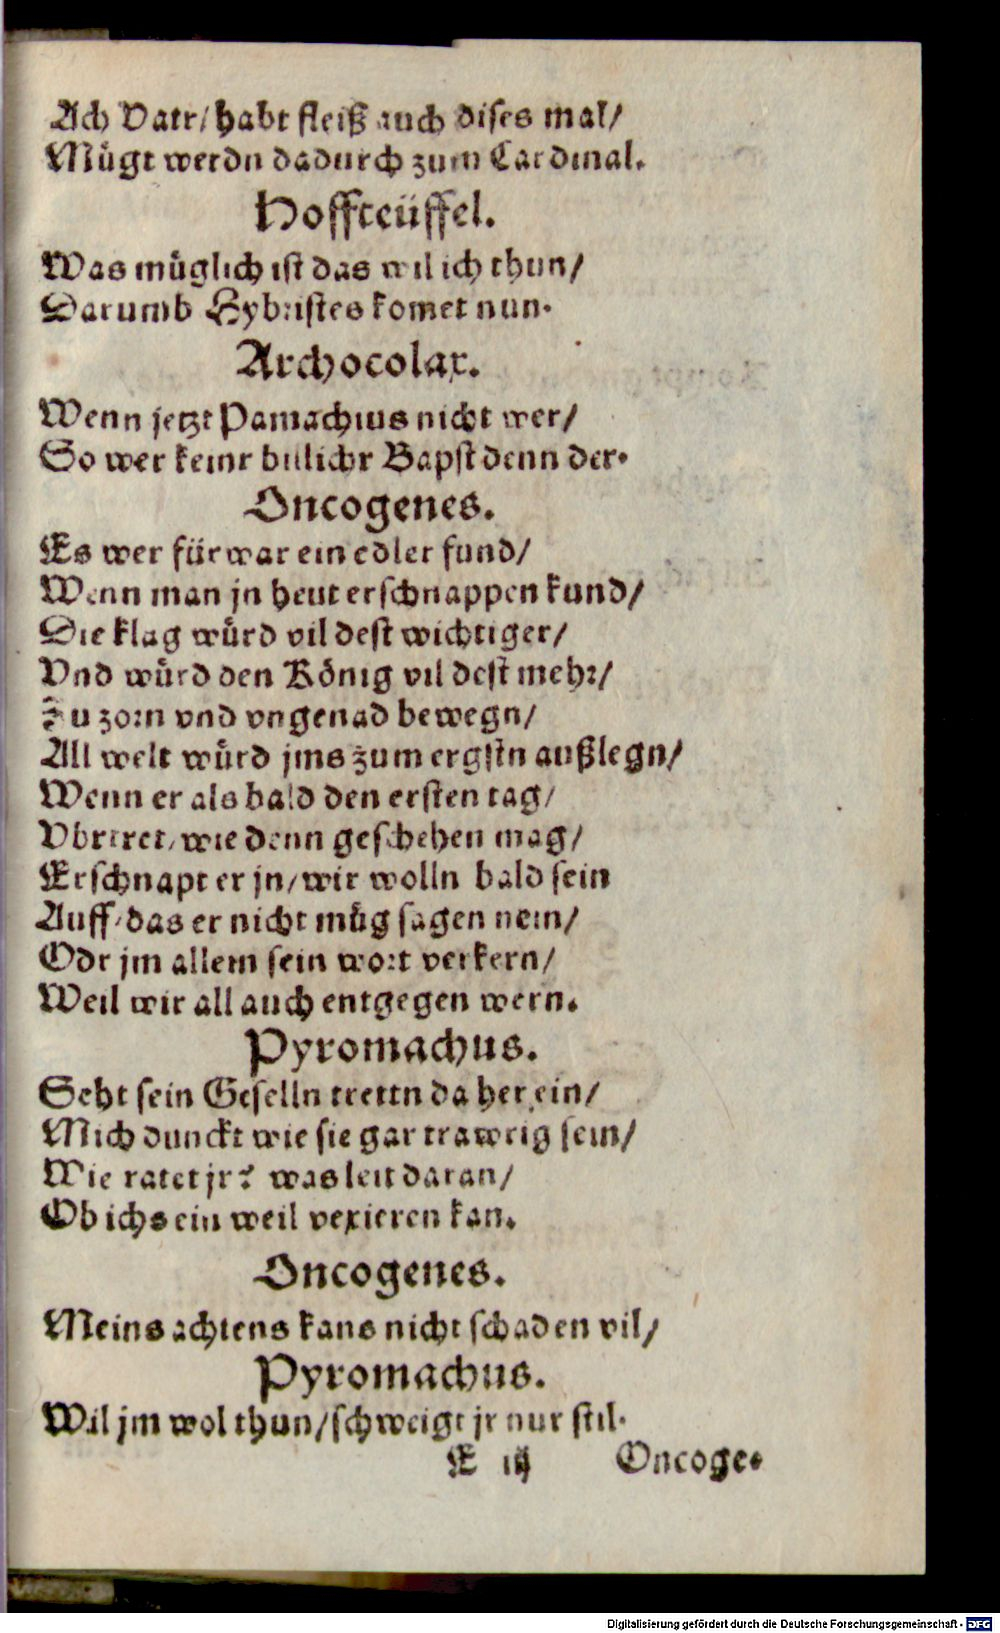 Ach Vatr/habt fleiß auch dises mal/
Mügt werdn dadurch zum Cardinal.
Hoffteüffel.
Was müglich ist das wil ich thun/
Darumb Hybristes komet nun.
Archocolax.
Wenn jetzt Pamachius nicht wer/
So wer keinr billichr Bapst denn der.
Oncogenes.
Es wer fürwar ein edler fund/
Wenn man jn heut erschnappen kund/
Die klag würd vil dest wichtiger/
Vnd würd den König vil dest mehr/
Zu zorn vnd vngenad bewegn/
All welt würd jms zum ergstn außlegn/
Wenn er als bald den ersten tag/
Vbrtret/wie denn geschehen mag/
Erschnapt er jn/wir wolln bald sein
Auff/das er nicht müg sagen nein/
Odr jm allem sein wort verkern/
Weil wir all auch entgegen wern.
Pyromachus.
Seht sein Geselln trettn da her ein/
Mich dunckt wie sie gar trawrig sein/
Wie ratet jr? was leit daran/
Ob ichs ein weil vexieren kan.
Oncogenes.
Meins achtens kans nicht schaden vil/
Pyromachus.
Wil jm wol thun/schweigt jr nur stil.
E iij Oncoge-
Digitalisierung gefördert durch die Deutsche Forschungsgemeinschaft - DFG